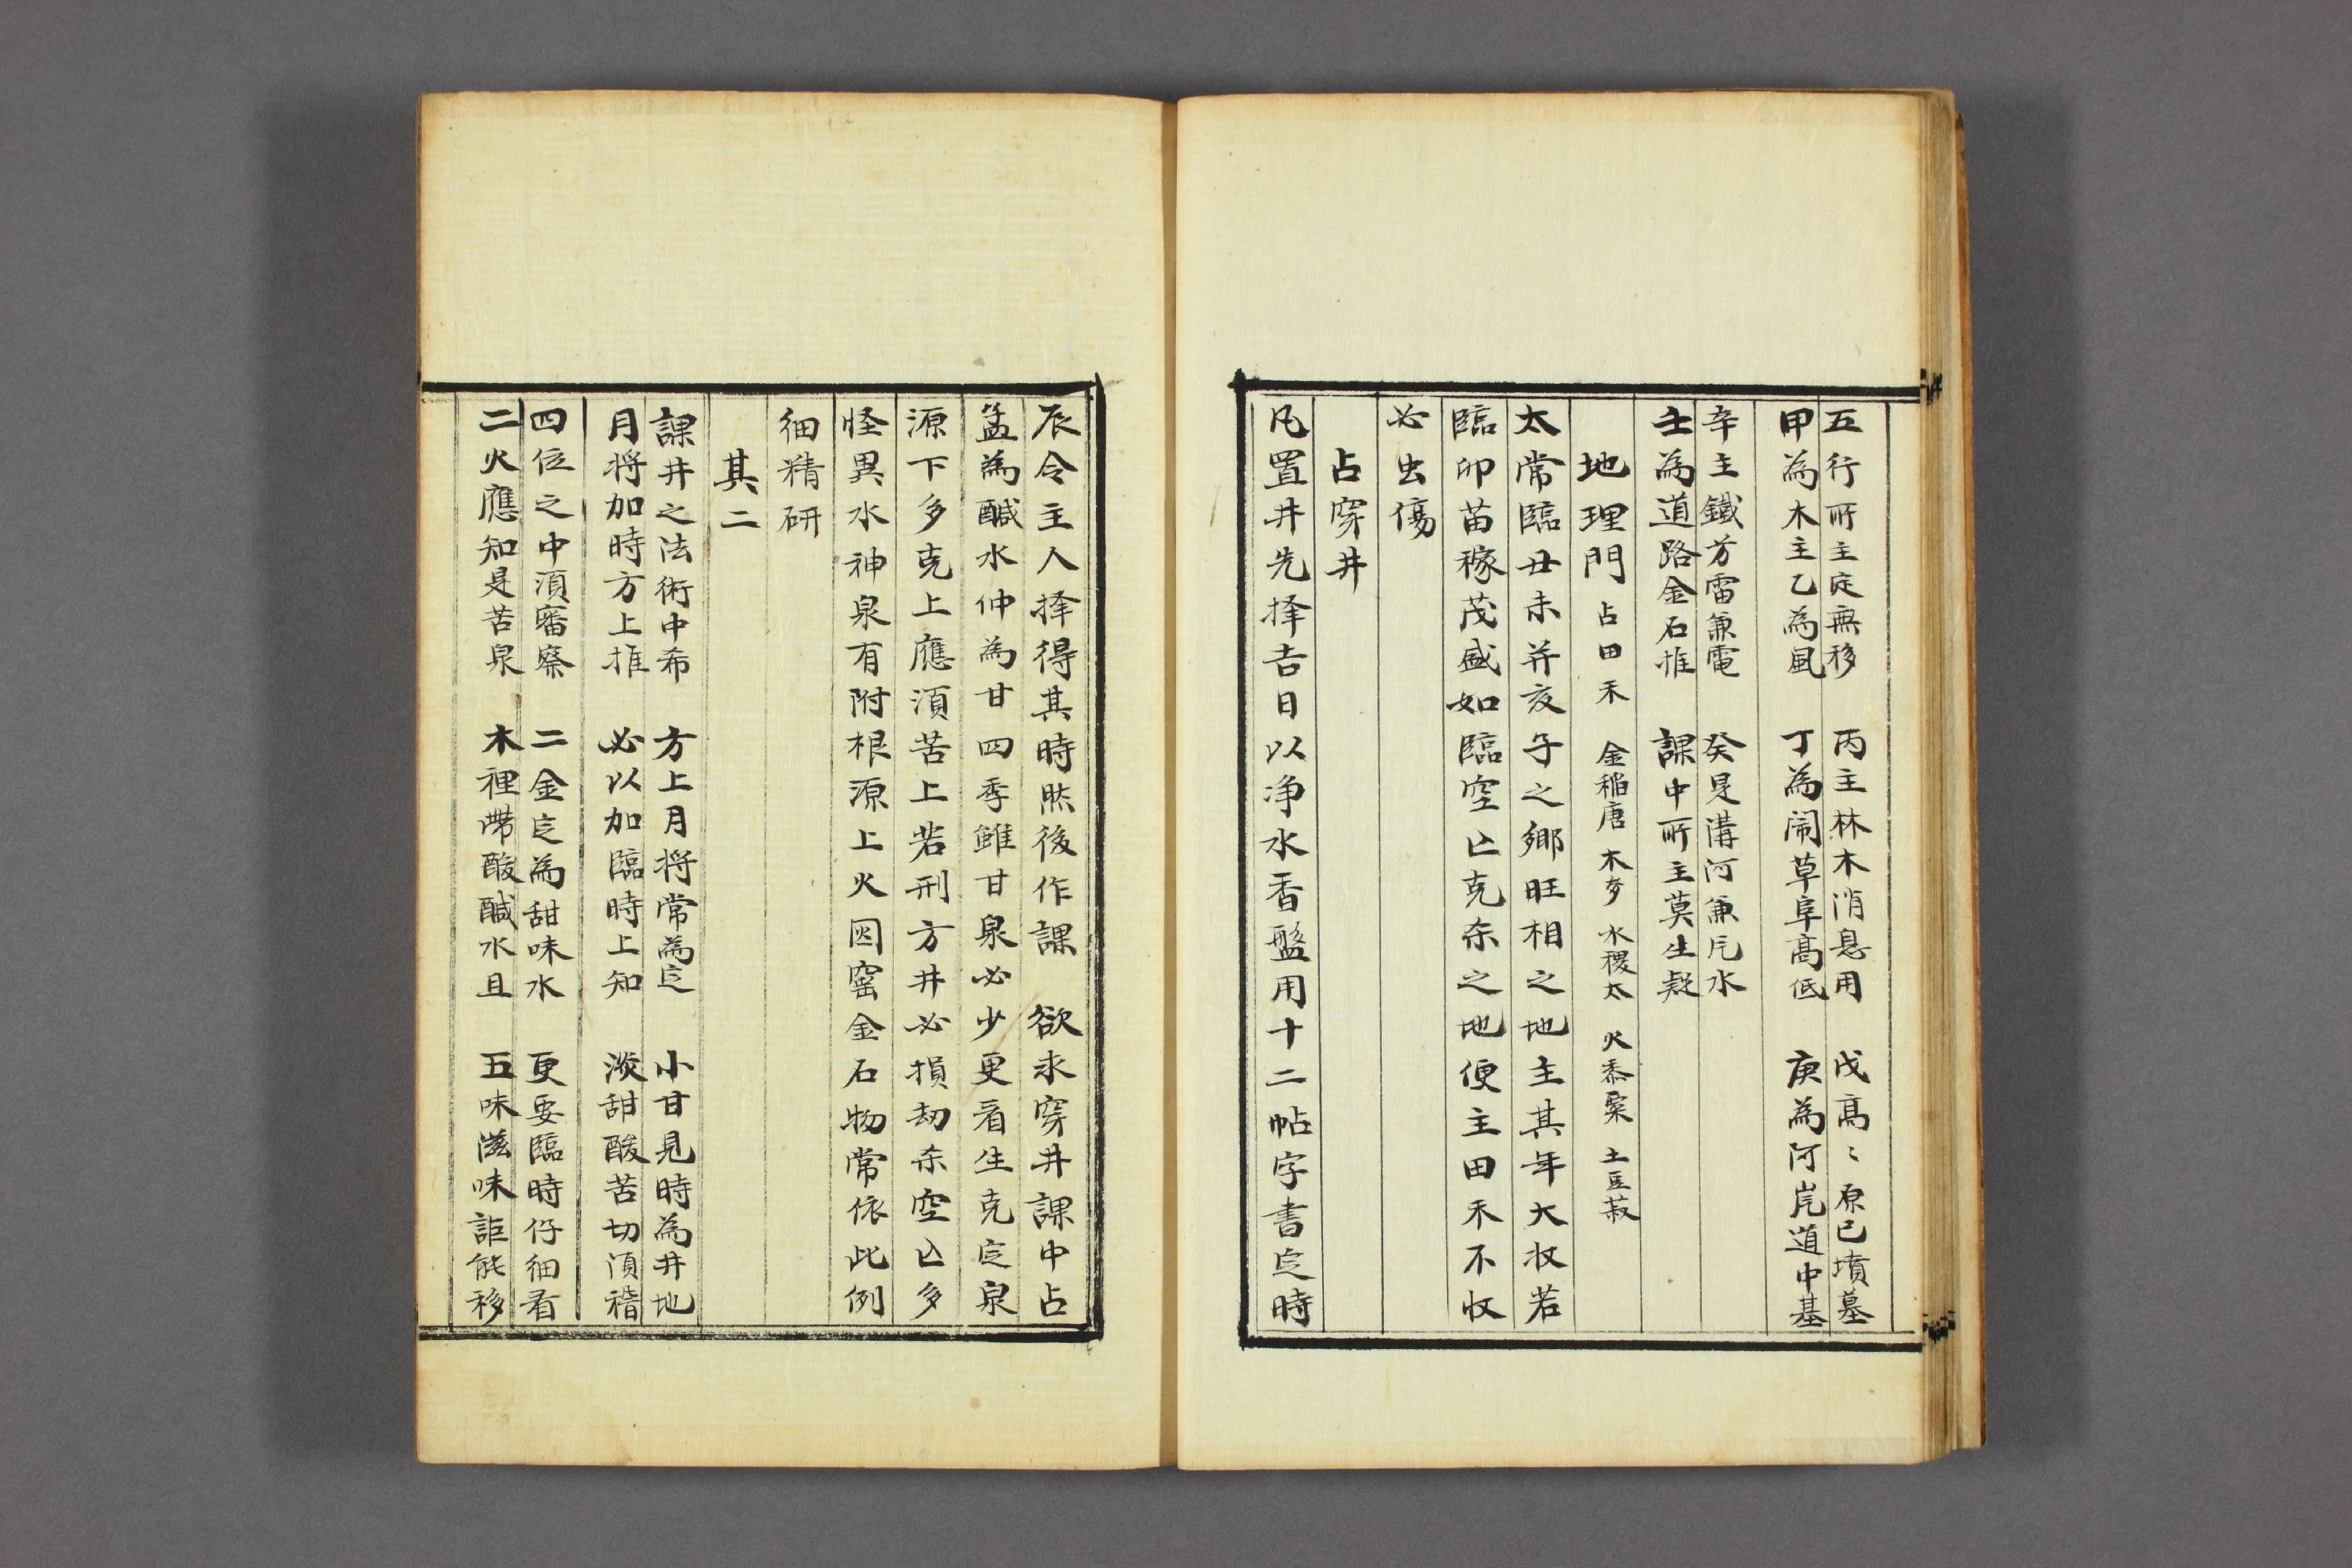 五行所主定無移　丙主林木消息用　戊髙〻原已墳墓
甲為木主乙為風　丁為閙草阜髙低　庚為河岸道中基
辛主鐵方雷兼電　癸是溝河兼凢水
壬為道路金石推　課中所主莫生疑
地理門　占田禾　金稲唐　木麥　水稷太　火黍粟　土豆菽
太常臨丑未并亥子之鄉旺相之地主其年大収若
臨卯苗稼茂盛如臨空亡克杀之地便主田禾不収
必虫傷
占穿井
凡置井先择吉日以净水香盤用十二帖字書定時
辰令主人择得其時然後作課　欲求穿井課中占
孟為醎水仲為甘四季雖甘泉必少更看生克定泉
源下多克上應湏苦上若刑方井必損刼杀空亡多
怪異水神泉有附根源上火因窑金石物常依此例
细精研
其二
課井之法術中希　方上月将常為定　小甘見時為井地
月将加時方上推　必以加臨時上知　淡甜酸苦切湏稽
四位之中湏審察　二金定為甜味水　更要臨時仔细看
二火應知是苦泉　木裡帶酸醎水且　五味滋味詎能移